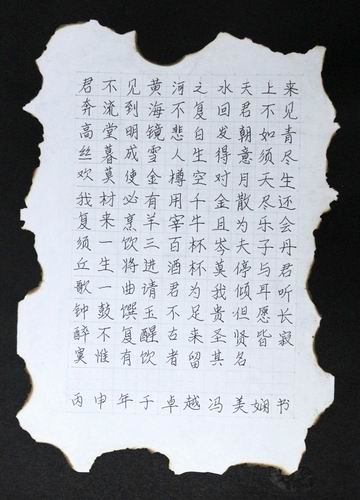 君不见黄河之水天上来
奔流到海不复回君不见
高堂明镜悲白发朝如青
丝暮成雪人生得意须尽
欢莫使金樽空对月天生
我材必有用千金散尽还
复来烹羊宰牛且为乐会
须一饮三百杯岑夫子丹
丘生将进酒杯莫停与君
歌一曲请君为我倾耳听
钟鼓馔玉不足贵但愿长
醉不复醒古来圣贤皆寂
寞惟有饮者留其名
丙申年于卓越冯美娴书